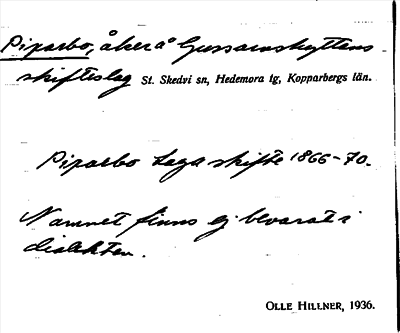 Piparbo, åker å Gussarvshyttens
skifteslag St. Skedvi sn, Hedemora tg, Kopparbergs län.
Piparbo Laga skifte 1866-70.
Namnet finns ej bevarat i
dialekten.
OLLE HILLNER, 1936.